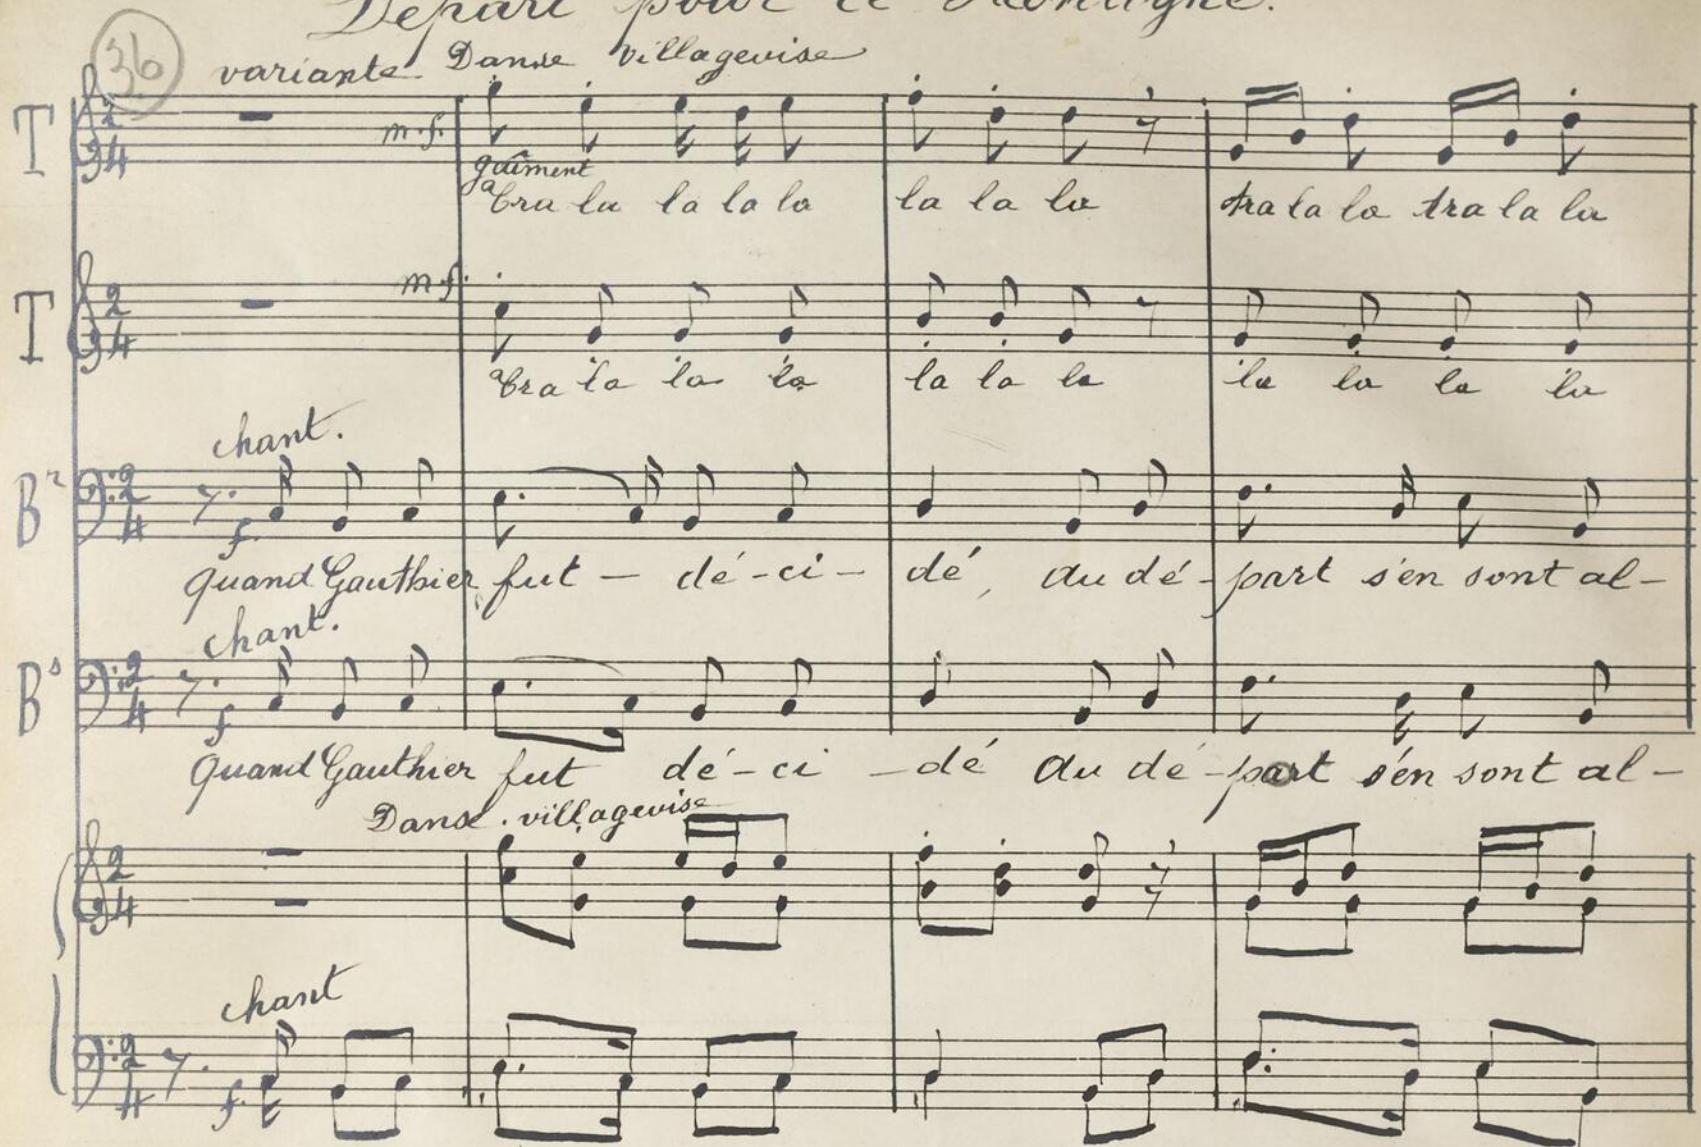 Départ pour la Montagne.
36
variante Danse Villageoise
T
m.f.
gaiment
Tra la la la la la la la tra la la tra la la
T
m.f.
Tra la la la la la la la la la la
chant.
Br
f.
quand Gauthier fut – dé-ci – dé, au dé-part s'en sont al-
chant.
Bs
f
Quand Gauthier fut dé-ci – dé au dé-part s'en sont al-
Danse villageoise
chant
f.